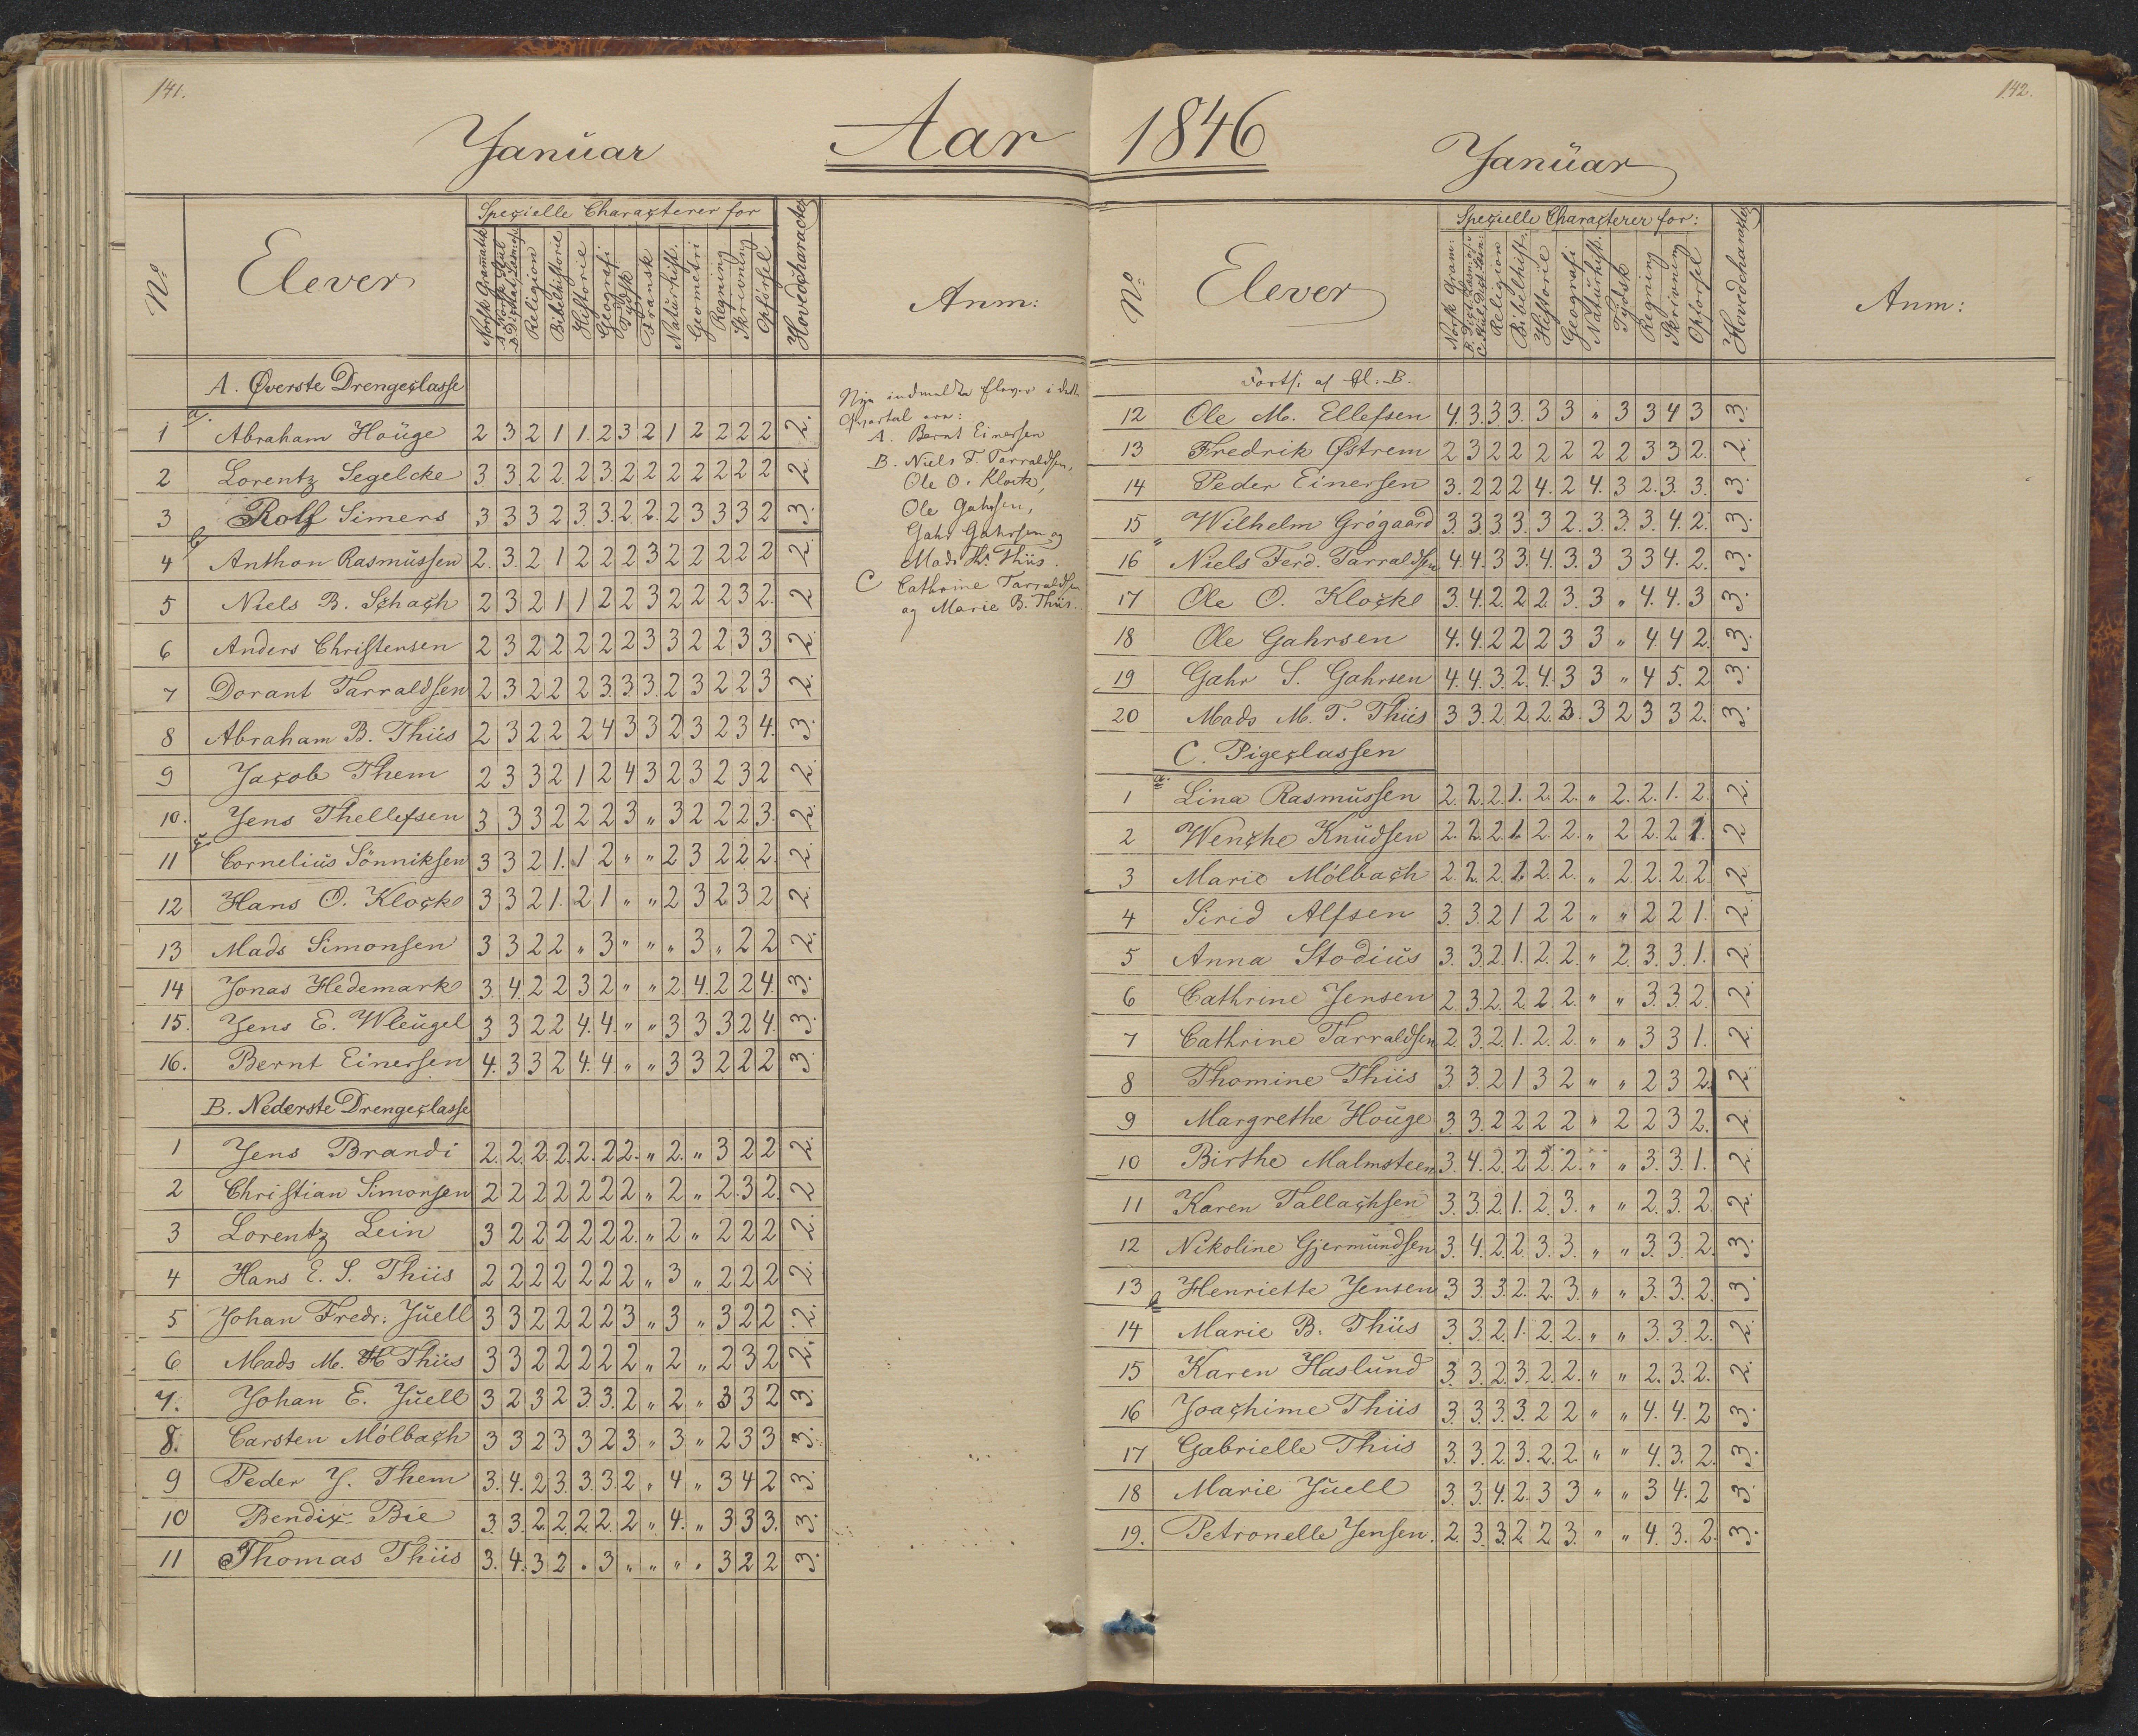 141.
Januar
Aar
No
Elever
Specielle Characterer for
Norsk Gramatik
Religion
Bibelhistorie
Historie
Geografi
Tydsk
Fransk
Naturhist.
Geometri
Regning
Skrivning
Opförsel
Hovedcharacter
Anm:
A. Øverste Drengeclasse
1 Abraham Houge 2 3 2 1 1. 2 3 2 1 2 2 2 2 2.
2 Lorentz Segelcke 3 3 2 2. 2 3. 2 2 2 2 2 2 2 2.
3 Rolf Simers 3 3 3 2 3. 3. 2. 2. 2 3 3 3 2 3.
4 Anthon Rasmussen 2. 3. 2 1 2 2 2 3 2 2 2 2 2 2.
5 Niels B. Schach 2 3 2 1 1 2 2 3 2 2 2 3 2. 2
6 Anders Christensen 2 3 2 2 2 2 2 3 3 2 2 3 3 2.
7 Dorant Tarraldsen 2 3 2 2 2 3. 3. 3. 2 3 2 2 3 2.
8 Abraham B. Thiis 2 3 2 2 2 4 3 3 2 3 2 3 4. 3.
9 Jacob Them 2 3 3 2 1 2 4 3 2 3 2 3 2 2.
10. Jens Thellefsen 3 3 3 2 2 2 3 " 3 2 2 2 3. 2.
11 Cornelius Sönniksen 3 3 2 1. 1 2 " " 2 3 2 2 2. 2.
12 Hans O. Klocke 3 3 2 1. 2 1 " " 2 3 2 3 2 2.
13 Mads Simonsen 3 3 2 2 " 3 " " " 3 " 2 2 2.
14 Jonas Hedemark 3. 4. 2 2 3 2 " " 2. 4. 2 2 4. 3.
15. Jens E. Wleugel 3 3 2 2 4. 4. " " 3 3 3 2 4. 3.
16. Bernt Einersen 4. 3 3 2 4. 4. " " 3 3 2 2 2 3.
B. Nederste Drengeclasse
1 Jens Brandi 2. 2. 2. 2. 2. 2 2. " 2. " 3 2 2 2.
2 Christian Simonsen 2 2 2 2 2 2 2 " 2 " 2. 3 2. 2
3 Lorentz Lein 3 2 2 2 2 2 2. " 2 " 2 2 2 2.
4 Hans E. S. Thiis 2 2 2 2 2 2 2 " 3 " 2 2 2 2.
5 Johan Fredr: Juell 3 3 2 2 2 2 3 " 3 " 3 2 2 2.
6 Mads M. H Thiis 3 3 2 2 2 2 2 " 2 " 2 3 2 2.
7. Johan E. Juell 3 2 3 2 3. 3. 2 " 2 " 3 3 2 3.
8. Carsten Mölbach 3 3 2 3 3 2 3 " 3 " 2 3 3 3.
9 Peder J. Them 3. 4. 2 3. 3. 3. 2 " 4 " 3 4 2 3.
10 Bendix Bie 3. 3. 2. 2. 2. 2. 2 " 4. " 3 3 3. 3.
11 Thomas Thiis 3. 4. 3 2 " 3 " " " " 3 2 2 3.
Nye indmeldte Elever i dette
Qvartal ere:
A. Bernt Einersen
B. Niels F. Tarraldsen,
Ole O. Klocke,
Ole Gahrsen,
Gahr Gahrsen og
Mads Th. Thiis.
C Cathrine Tarraldsen
og Marie B. Thiis.
142.
1846
Januar
No
Elever
Specielle Characterer for:
Norsk Gram:
Religion
Bibelhist.
Historie
Geografi
Naturhist.
Tydsk
Regning
Skrivning
Opförsel
Hovedcharacter
Anm:
Forts: af Cl. B.
12 Ole M. Ellefsen 4. 3. 3. 3. 3 3 " 3 3 4 3 3.
13 Fredrik Østrem 2 3 2 2 2 2 2 2 3 3 2. 2.
14 Peder Einersen 3. 2 2 2 4. 2 4. 3 2. 3. 3. 3.
15 Wilhelm Grögaard 3 3 3 3. 3 2. 3. 3. 3. 4. 2. 3.
16 Niels Ferd. Tarraldsen 4. 4. 3 3. 4. 3. 3 3 3 4. 2. 3.
17 Ole O. Klocke 3. 4. 2. 2 2. 3. 3 " 4. 4. 3 3.
18 Ole Gahrsen 4. 4. 2 2 2 3 3 " 4 4 2. 3.
19 Gahr S. Gahrsen 4. 4. 3. 2. 4. 3 3 " 4 5. 2 3.
20 Mads M. T. Thiis 3 3. 2. 2. 2. 3. 3 2 3 3 2. 3.
C. Pigeclassen
1 Lina Rasmussen 2. 2. 2. 1. 2. 2. " 2. 2. 1. 2. 2.
2 Wenche Knudsen 2. 2. 2 1. 2. 2. " 2 2. 2 1. 2
3 Marie Mölbach 2. 2. 2. 1. 2. 2. " 2. 2. 2. 2. 2.
4 Sirid Alfsen 3. 3. 2 1 2 2 " " 2 2 1. 2.
5 Anna Stodius 3. 3. 2. 1. 2. 2. " 2. 3. 3. 1. 2.
6 Cathrine Jensen 2. 3. 2. 2. 2. 2. " " 3. 3. 2. 2.
7 Cathrine Tarraldsen 2. 3. 2. 1. 2. 2. " " 3 3 1. 2.
8 Thomine Thiis 3. 3. 2 1 3 2 " " 2 3 2. 2.
9 Margrethe Houge 3. 3. 2 2 2 2 " 2 2 3 2. 2.
10 Birthe Malmsteen 3. 4. 2. 2 2. 2. " " 3. 3. 1. 2.
11 Karen Tallachsen 3. 3. 2. 1. 2. 3. " " 2. 3. 2. 2.
12 Nikoline Gjermundsen 3. 4. 2. 2. 3. 3. " " 3. 3. 2. 3.
13 Henriette Jensen 3. 3. 3. 2. 2. 3. " " 3. 3. 2. 3.
14 Marie B. Thiis 3. 3. 2. 1. 2. 2. " " 3. 3. 2. 2.
15 Karen Haslund 3. 3. 2. 3. 2. 2. " " 2. 3. 2. 2.
16 Joachime Thiis 3. 3. 3. 3. 2 2 " " 4. 4. 2 3.
17 Gabrielle Thiis 3. 3. 2. 3. 2. 2. " " 4. 3. 2. 3.
18 Marie Juell 3. 3. 4. 2. 3 3 " " 3 4. 2 3.
19. Petronelle Jensen. 2. 3. 3. 2 2 3. " " 4. 3. 2. 3.